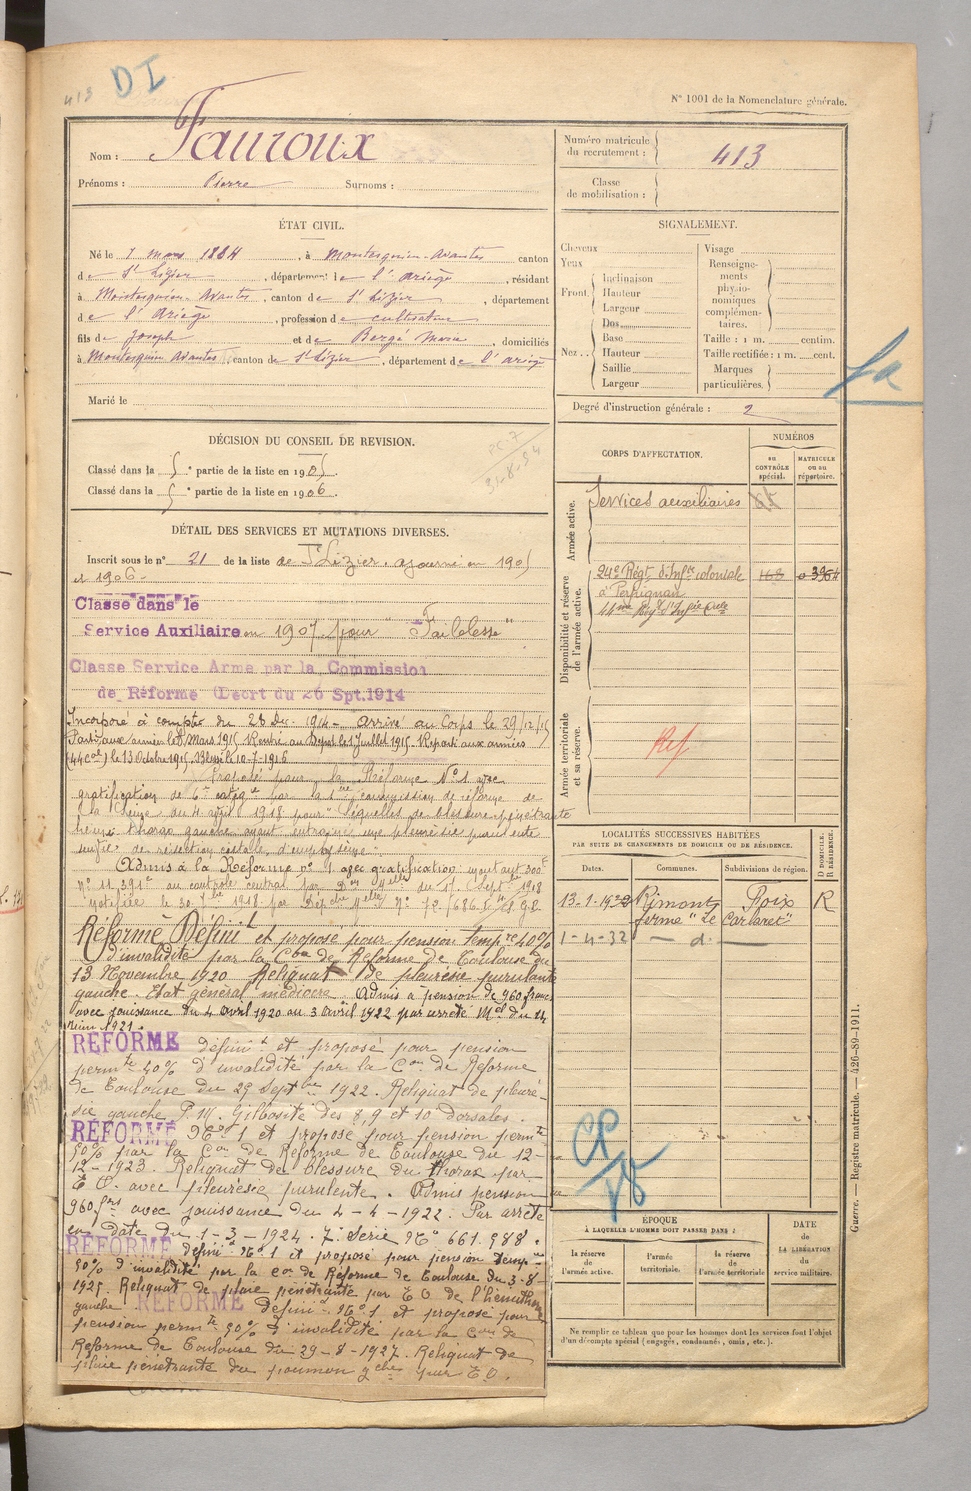 413
DI
N° 1001 de la Nomenclature générale.
Nom : Fauroux
Prénoms : Pierre Surnoms :
Numéro matricule du recrutement : 413
Classe de mobilisation :
ÉTAT CIVIL.
Né le 7 mars 1884, à Montesquieu-Avantès canton
de St Lizier, département de l'Ariège, résidant
à Montesquieu-Avantès, canton de St Lizier, département
de l'Ariège, profession de cultivateur
fils de Joseph et de Bergé Marie, domiciliés
à Montesquieu Avantès, canton de St Lizier, département de l'Ariège
Marié le
SIGNALEMENT.
Cheveux
Yeux
Front. Inclinaison
Hauteur
Largeur
Nez... Dos
Base
Hauteur
Saillie
Largeur
Visage
Renseignements physionomiques complémentaires.
Taille : 1 m. centim.
Taille rectifiée : 1 m. cent.
Marques particulières.
Degré d'instruction générale : 2
DÉCISION DU CONSEIL DE REVISION.
Classé dans la 5e partie de la liste en 1905.
Classé dans la 5e partie de la liste en 1906.
DÉTAIL DES SERVICES ET MUTATIONS DIVERSES.
Inscrit sous le n° 21 de la liste de St Lizier. ajourné en 1905
et 1906.
Classé dans le
Service Auxiliaire en 1907 pour "Faiblesse"
Classé Service Armé par la Commission
de Réforme (Décrt du 26 Spt.1914
Incorporé à compter du 28 Dec. 1914 - arrivé au Corps le 29/12/15
Parti aux armées le 8 Mars 1915 Rentré au Dépôt le 1 Juillet 1915. Reparti aux armées
(44e Col) le 13 Octobre 1915. Blessé le 10-7-1916
Proposé pour la Réforme N° 1 avec
gratification de 6e catégie par la 1ère commission de réforme de
la Seine du 4 avril 1918 pour "séquelles de blessure pénétrante
hémi thorax gauche ayant entrainé une pleurésie purulente
suivie de résection costale, d'empyème".
Admis à la Réforme n° 1 avec gratification montant 300f
n° 11.391e au contrôle central par Don Melle du 17 Septbre 1918
notifiée le 30.7bre 1918 par Dépche Melle N° 72/686
Réformé Définit et propose pour pension tempre 40%
d'invalidité par la Con de Réforme de Toulouse du
13 Novembre 1920 Reliquat de pleurésie purulente
gauche. Etat général médiocre. Admis à pension de 960 francs
avec jouissance du 4 avril 1920 au 3 avril 1922 par arrêté Mel du 14
Juin 1921.
RÉFORMÉ définit et proposé pour pension
permte 40% d'invalidité par la Con de Réforme
de Toulouse du 29 Septbre 1922. Reliquat de pleuré-
sie gauche P.M. Gibbosité des 8, 9 et 10 dorsales.
RÉFORMÉ No 1 et proposé pour pension permte
50% par la Con de Réforme de Toulouse du 12-
12-1923. Reliquat de blessure du thorax par
E O. avec pleurésie purulente. Admis pension
960 frs avec jouissance du 4-4-1922. Par arrêté
en date du 1-3-1924. 7e Série No 661.988.
RÉFORMÉ défini No 1 et proposé pour pension temp.
50% d'invalidité par la con de Réforme de Toulouse du 3-8-
1925. Reliquat de plaie pénétrante par E O de l'hémithorax
gauche RÉFORMÉ défini No 1 et proposé pour
pension permte 50% d'invalidité par la Con de
Réforme de Toulouse du 29-8-1927. Reliquat de
plaie pénétrante du poumon gche par E O.
CORPS D'AFFECTATION.
NUMÉROS
au CONTRÔLE spécial.
MATRICULE ou au répertoire.
Armée active.
Services auxiliaires
Disponibilité et réserve de l'armée active.
24e Régt d'Infie coloniale
à Perpignan
44me Régt d'Infie Cole
Armée territoriale et sa réserve.
Ref
LOCALITÉS SUCCESSIVES HABITÉES
PAR SUITE DE CHANGEMENTS DE DOMICILE OU DE RÉSIDENCE.
Dates. Communes. Subdivisions de région.
D DOMICILE. R RÉSIDENCE.
Rimont Foix R
ferme "Le Carlaret"
1-4-32 - d° -
ÉPOQUE
À LAQUELLE L'HOMME DOIT PASSER DANS :
la réserve de l'armée active.
l'armée territoriale.
la réserve de l'armée territoriale
DATE DE LA LIBÉRATION du service militaire.
Ne remplir ce tableau que pour les hommes dont les services font l'objet
d'un décompte spécial (engagés, condamnés, omis, etc.).
Guerre. — Registre matricule. — 426-89-1911.